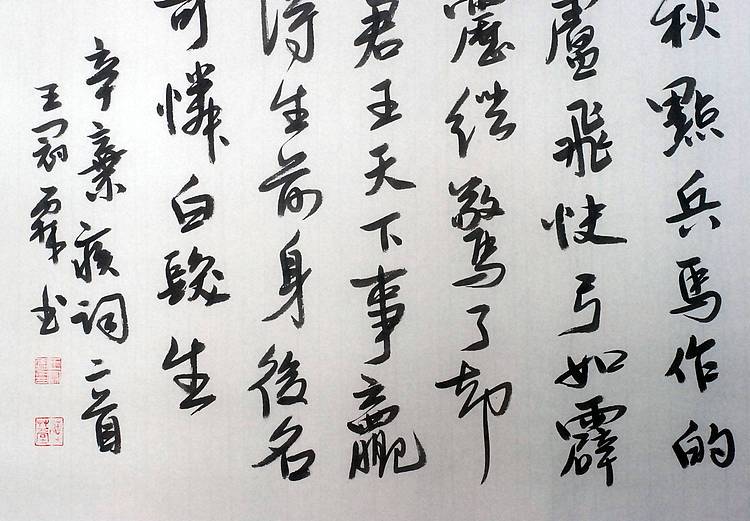 秋點兵馬作的
盧飛快弓如霹
靂絃驚了却
君王天下事贏
得生前身後名
可憐白髮生
辛棄疾詞二首
王冠霖书